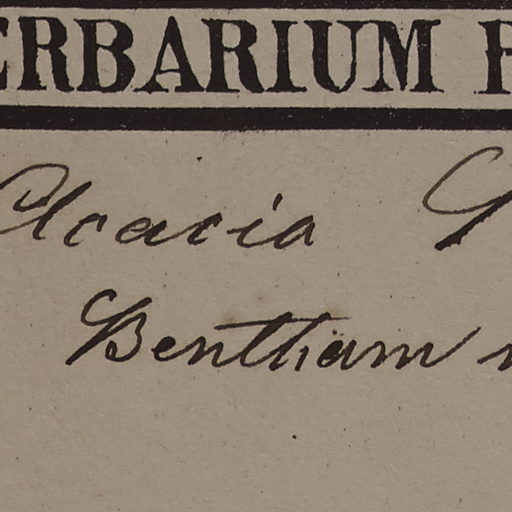 ERBARIUM
Acacia
Bentham